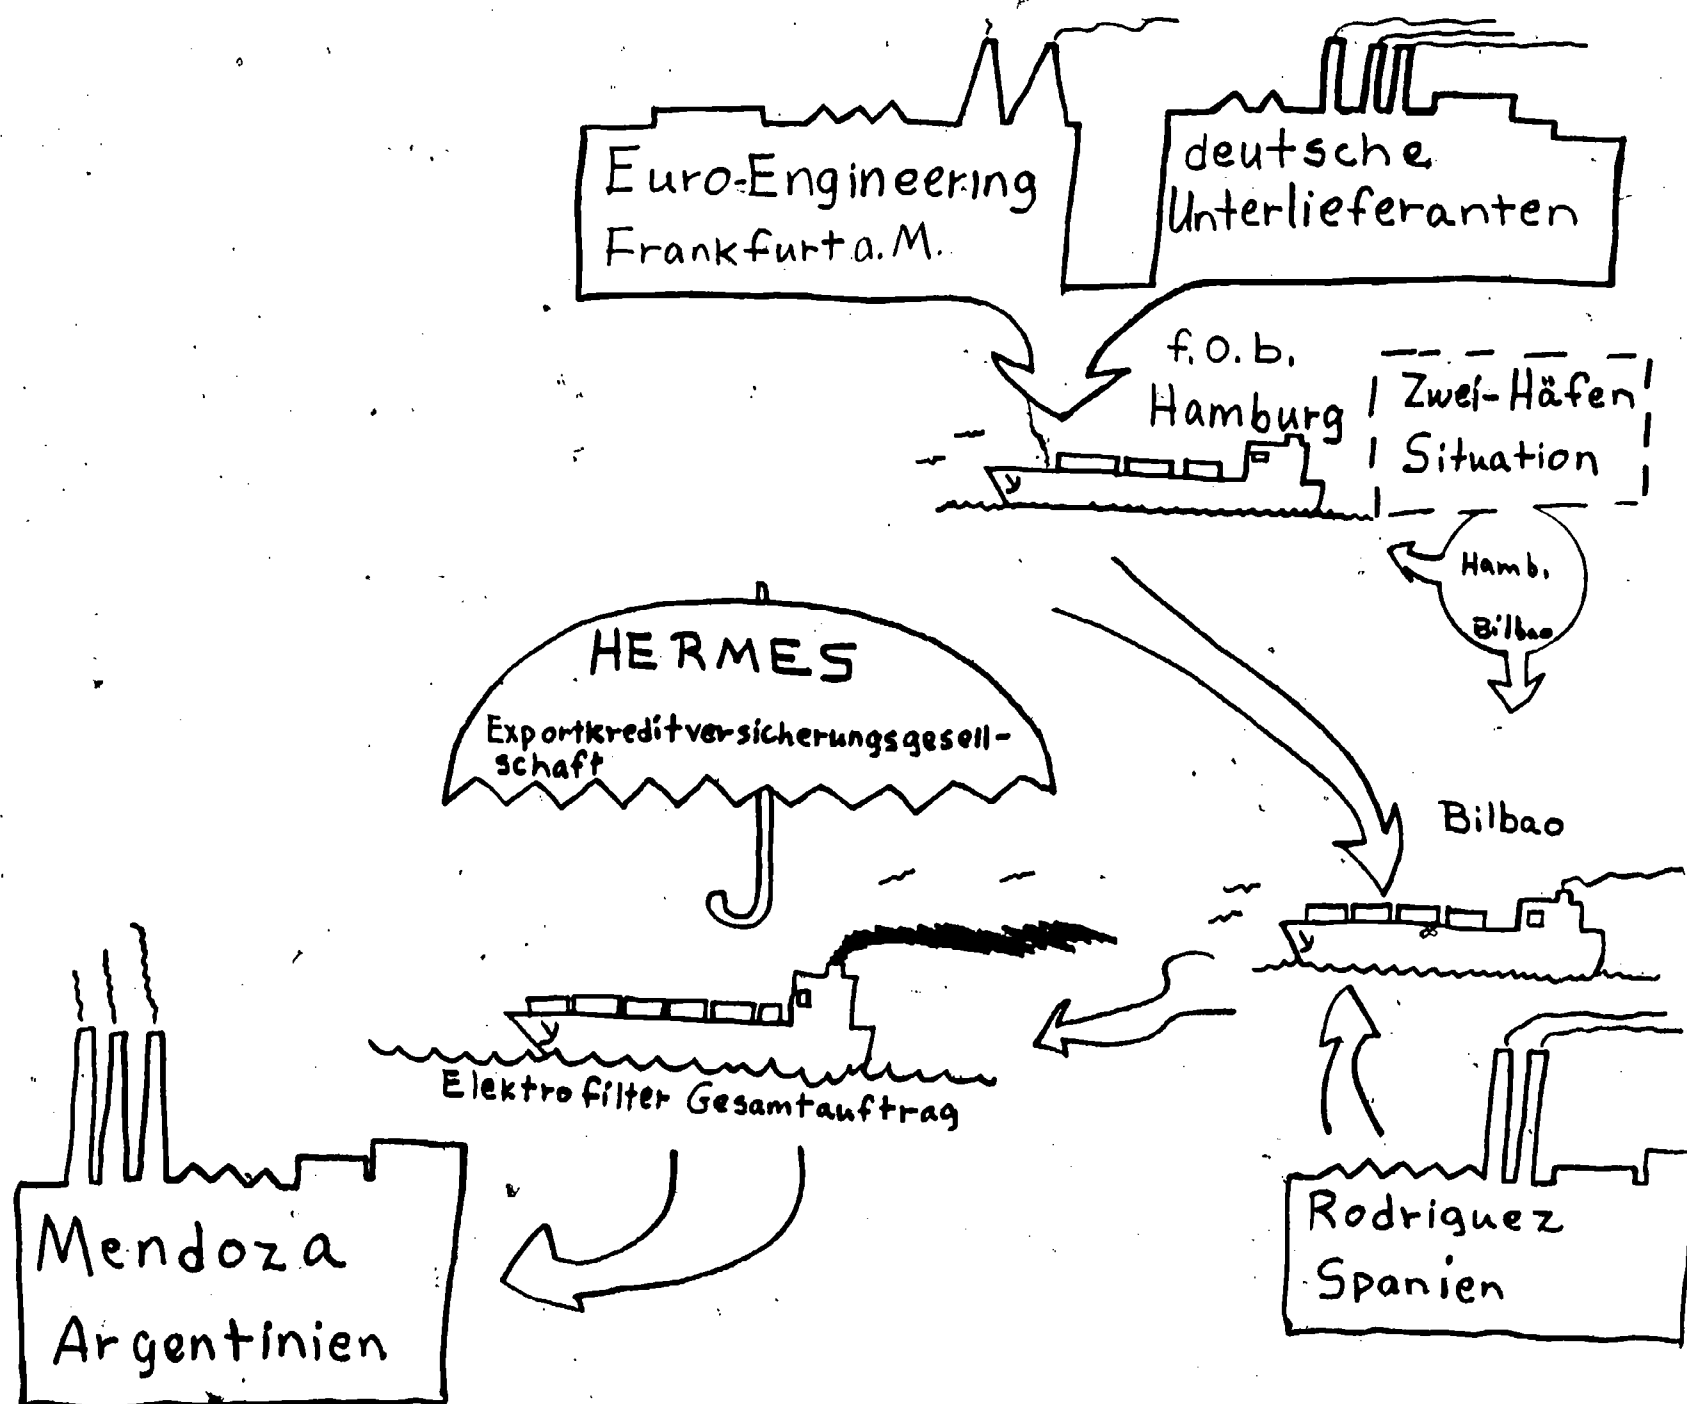 Euro-Engineering
Frankfurt a. M.
deutsche
Unterlieferanten
f.o.b.
Hamburg
Zwei-Häfen
Situation
Hamb.
Bilbao
HERMES
Exportkreditversicherungsgesell-
schaft
Bilbao
Elektrofilter Gesamtauftrag
Mendoza
Argentinien
Rodriguez
Spanien